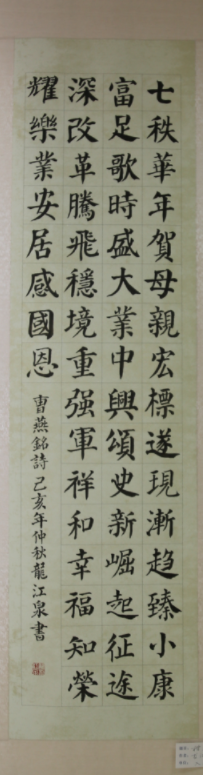 七秩華年賀母親宏標遂現漸趋臻小康
富足歌時盛大業中興頌史新崛起征途
深改革騰飛穩境重强軍祥和幸福知榮
耀樂業安居感國恩
曹燕銘詩己亥年仲秋龍江泉書